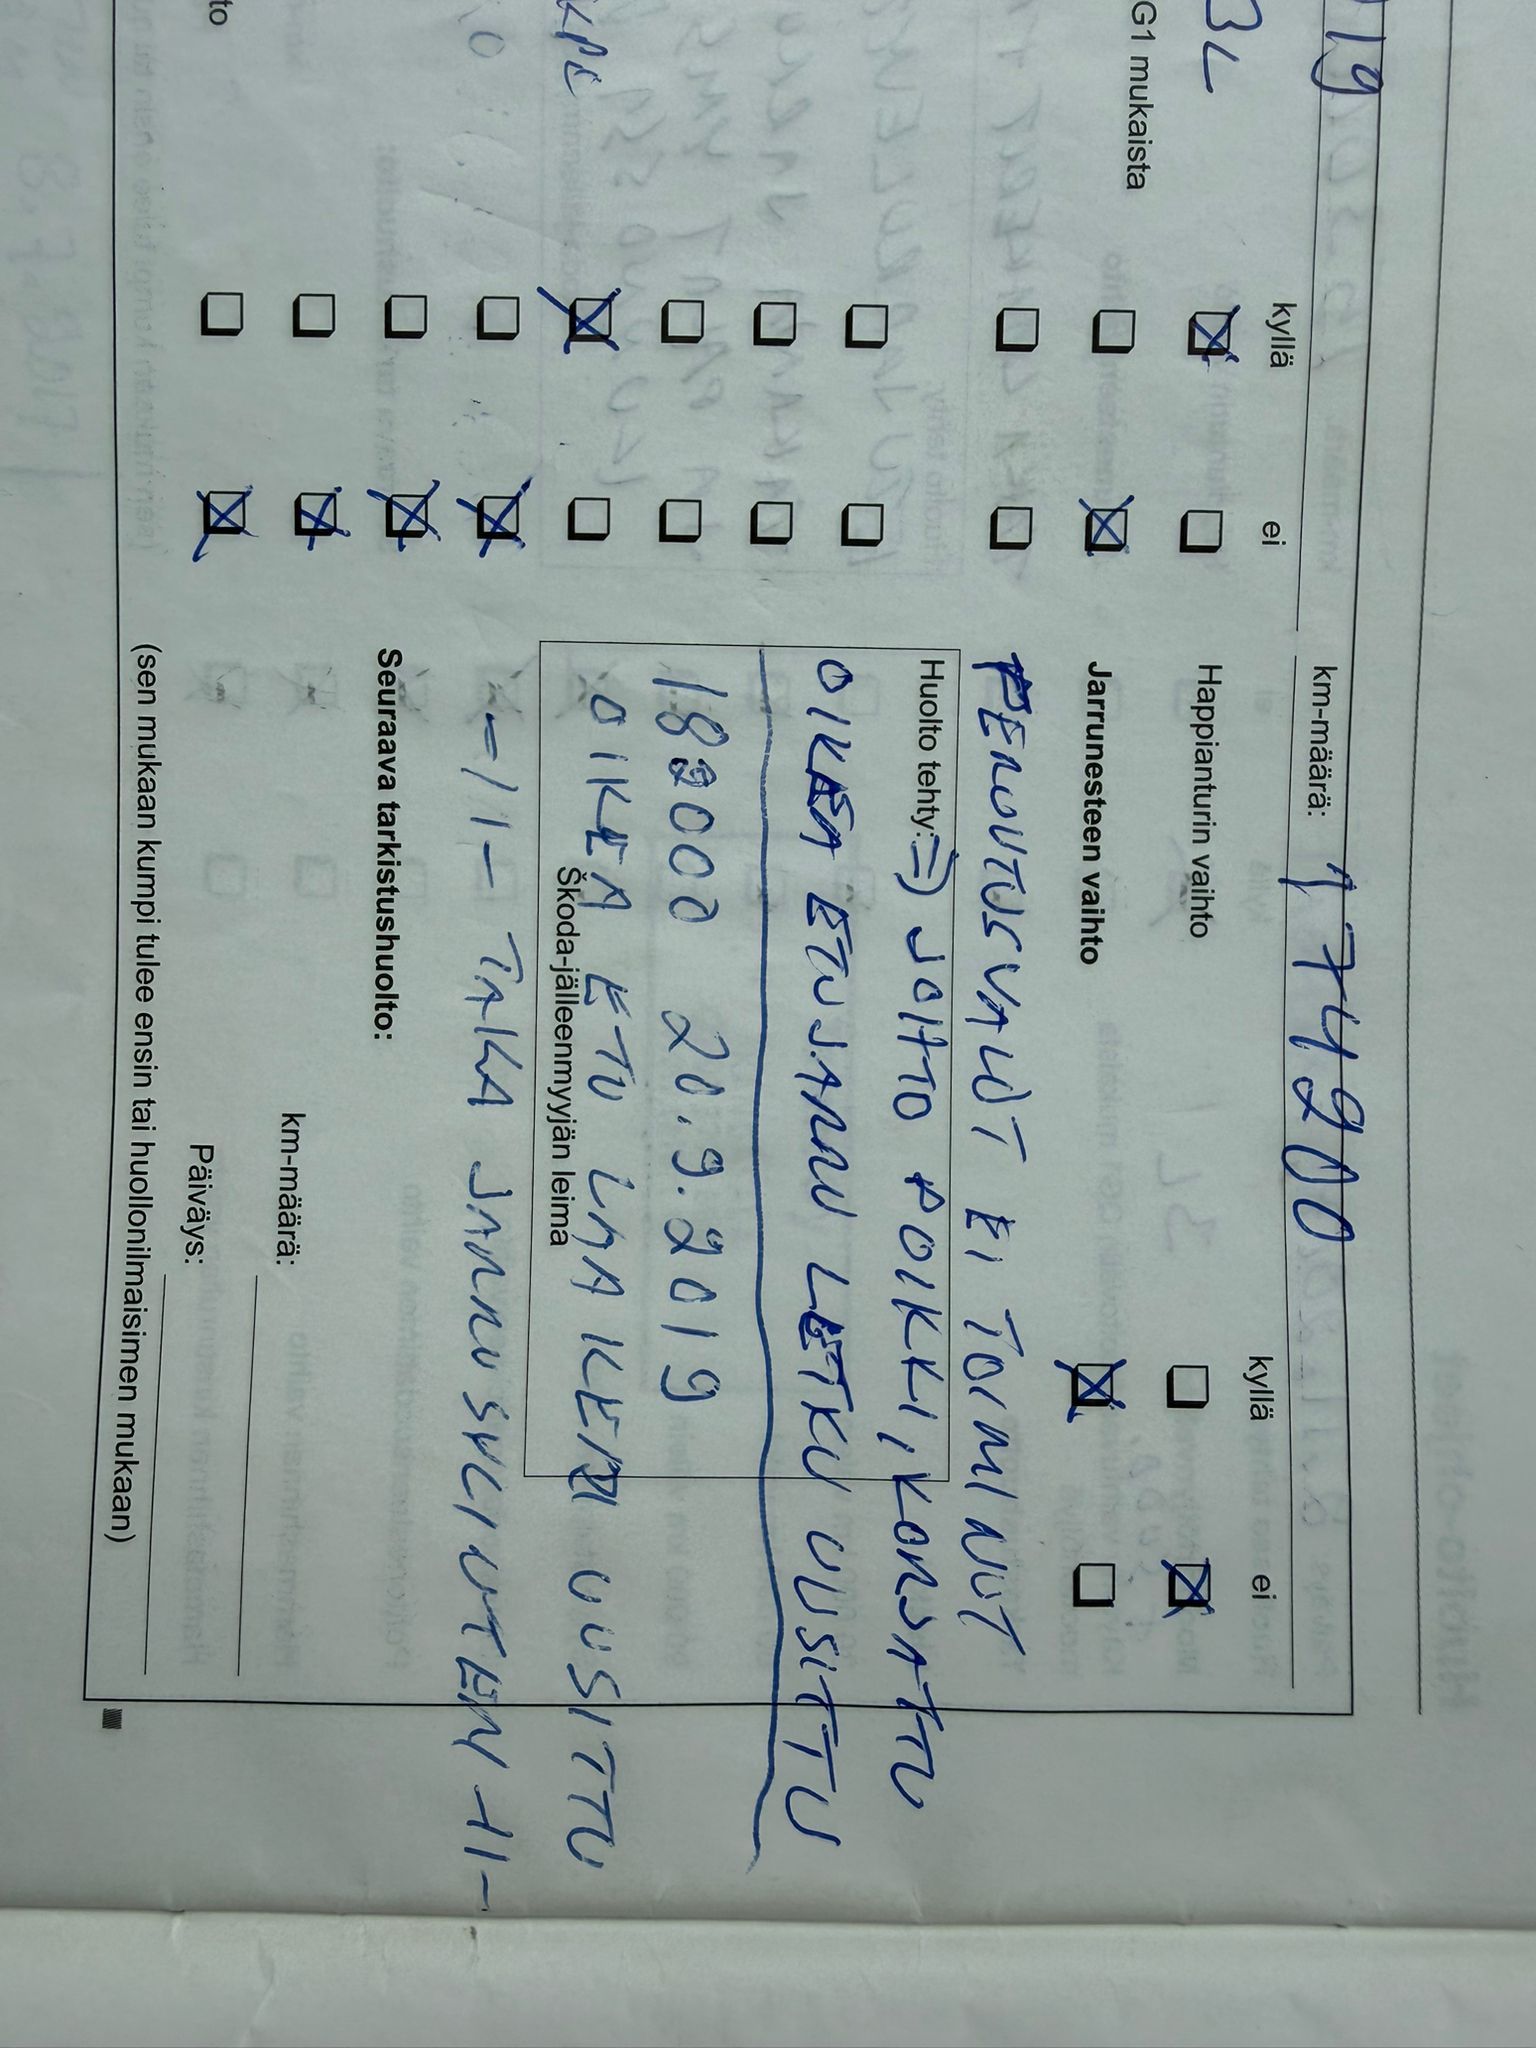 019
km-määrä: 174900
kyllä ei
kyllä ei
3L
Happianturin vaihto
G1 mukaista
Jarrunesteen vaihto
PERUUTUSVALOT EI TOIMINUT
Huolto tehty: => JOHTO POIKKI, KORJATTU
OIKEA ETUJARRU LETKU UUSITTU
182000 20.9.2019
KPL
OIKEA ETU LHA IKEA UUSITTU
Škoda-jälleenmyyjän leima
-11- TAKA JARRUSYLINTERI -11-
Seuraava tarkistushuolto:
km-määrä:
to
Päiväys:
(sen mukaan kumpi tulee ensin tai huollonilmaisimen mukaan)